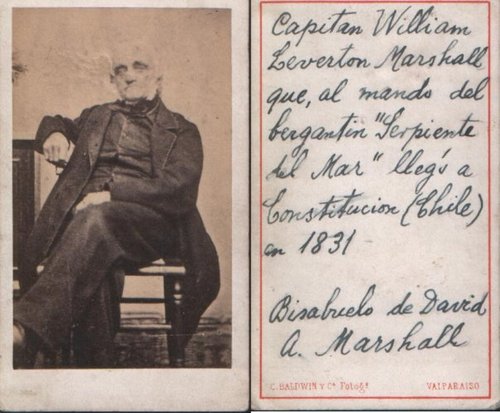 Capitan William
Leverton Marshall
que, al mando del
bergantin "Serpiente
del Mar" llegó a
Constitucion (Chile)
en 1831
Bisabuelo de David
A. Marshall
C. BALDWIN Y Cª Fotogs
VALPARAISO